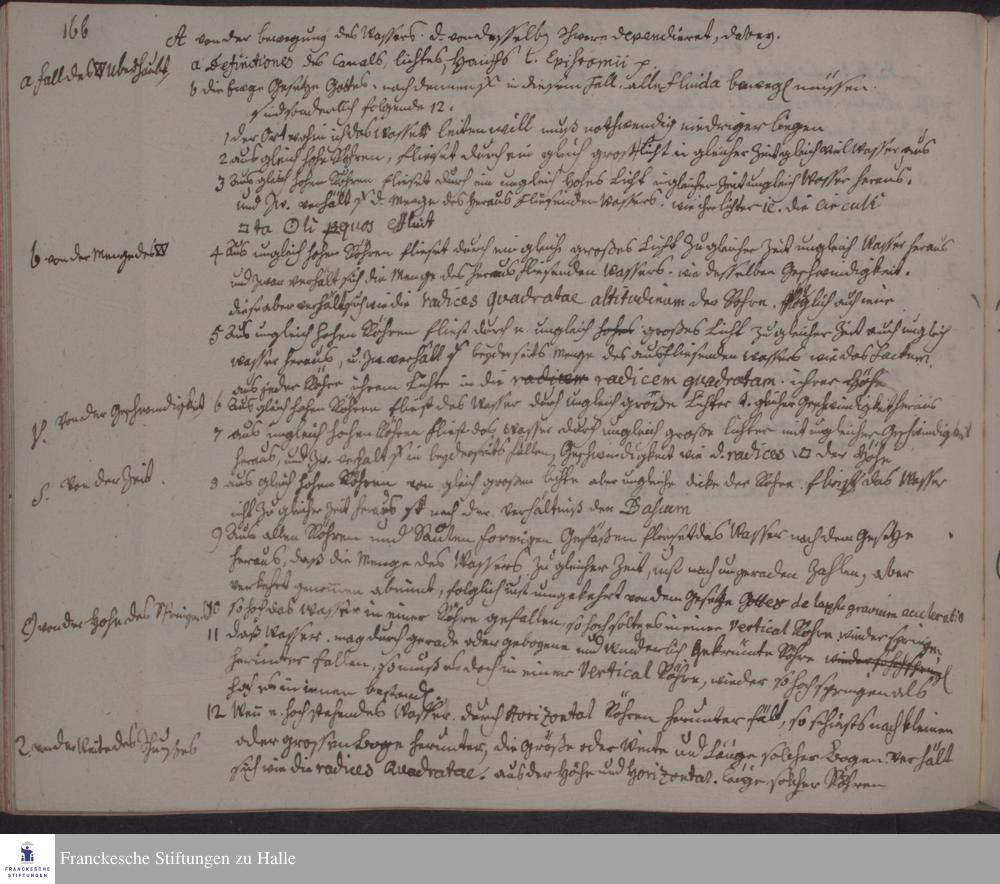 166
A von der bewegung des Wassers. d. von desselben schwere dependieret, dabey.
a fall des W überhaubt
a Definitiones des Canals, lichtes,
b die Ewge Gesetze Gottes, nach denen in diesem fall alle Fluida bewegl müssen
sind sonderlich folgende 12.
1 der Ort wohin ich das Wasser leiten will muß nothwendig niedriger liegen
2 aus gleich hohen Röhren, fließet durch ein gleich großes licht in gleicher Zeit gleich viel Wasser aus
3 Aus gleich hohen Röhren fließet durch ein ungleich hohes Licht in gleicher Zeit ungleich Wasser heraus,
und zw. verhält d. Menge des heraus fließenden Wassers. wie ihre lichter ic. die circuli
b von der Menge des W
4 Aus ungleich hohen Röhren fließet durch ein gleich großes Licht zu gleicher Zeit ungleich Wasser heraus
und zwar verhält sich die Menge des heraus fließenden Wassers. wie desselben Geschwindigkeit.
diese aber verhält sich wie die radices quadratae altitudinum der Rohre. folglich auch jene
5 Aus ungleich hohen Röhren fließt durch e. ungleich hohes großes Licht zu gleicher Zeit auch ungleich
Wasser heraus, u. zw. verhält beyderseits Menge des ausfließenden Wassers wie das factum
aus jeder Röhre ihrem Lichte in die radicem radicem quadratam. ihrer Höhe
γ. Von der Geschwindigkeit
6 Aus gleich hohen Röhren fließt das Wasser durch ungleich große Lichter t. gleicher Geschwindigkeit heraus
7 aus ungleich hohen Röhren fließt das Wasser durch ungleich große lichter mit ungleicher Geschwindigkeit
heraus, und zw. verhält in beyderseits fällen, Geschwindigkeit wie d. radices □ der Höhe
δ. Von der Zeit.
8 aus gleich hohen Röhren von gleich großem lichte aber ungleiche dicke der Röhre. fließt das Wasser
nicht zu gleicher Zeit heraus nach der Verhältniß der Basium
9 Aus allen Röhren und Säulen formigen Gefäßen fließet das Wasser nach dem Gesetze
heraus, daß die Menge des Wassers zu gleicher Zeit, nach ungeraden Zahlen, aber
verkehrt genommen abnimt, folglich just umgekehrt von dem Gesetze Gottes de lapsu gravium accelerato
von der Höhe des Springens
10 so hoch das Wasser in einer Röhre gefallen, so hoch solte es in einer Vertical Röhre wieder springen
11 daß Wasser. mag durch gerade oder gebogene und wunderlich gekrümte Röhre
herunter fallen, so muß es doch in einer Vertical Röhre, wieder so hoch springen als
12 Wenn e. hochstehendes Wasser. durch Horizontal Röhren herunter fält, so schießts nach kleinem
ζ von der Weite des Schußes
oder grossem Boge herunter, die Größe oder Weite und Länge solcher Bogen verhält
sich wie die radices Quadratae. aus der Höhe und Horizontal. länge solcher Röhren
FRANCKESCHE
STIFTUNGEN
Franckesche Stiftungen zu Halle